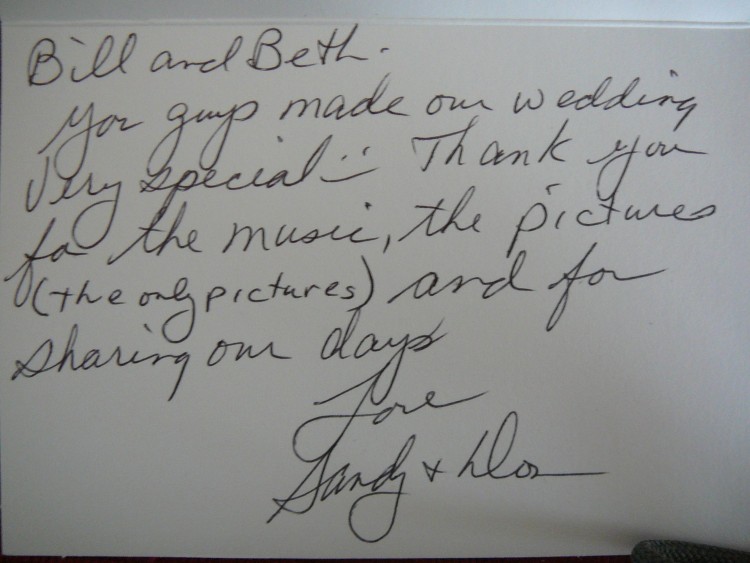 Bill and Beth.
You guys made our wedding
very special :) Thank you
for the music, the pictures
(the only pictures) and for
sharing our days
Love
Sandy +